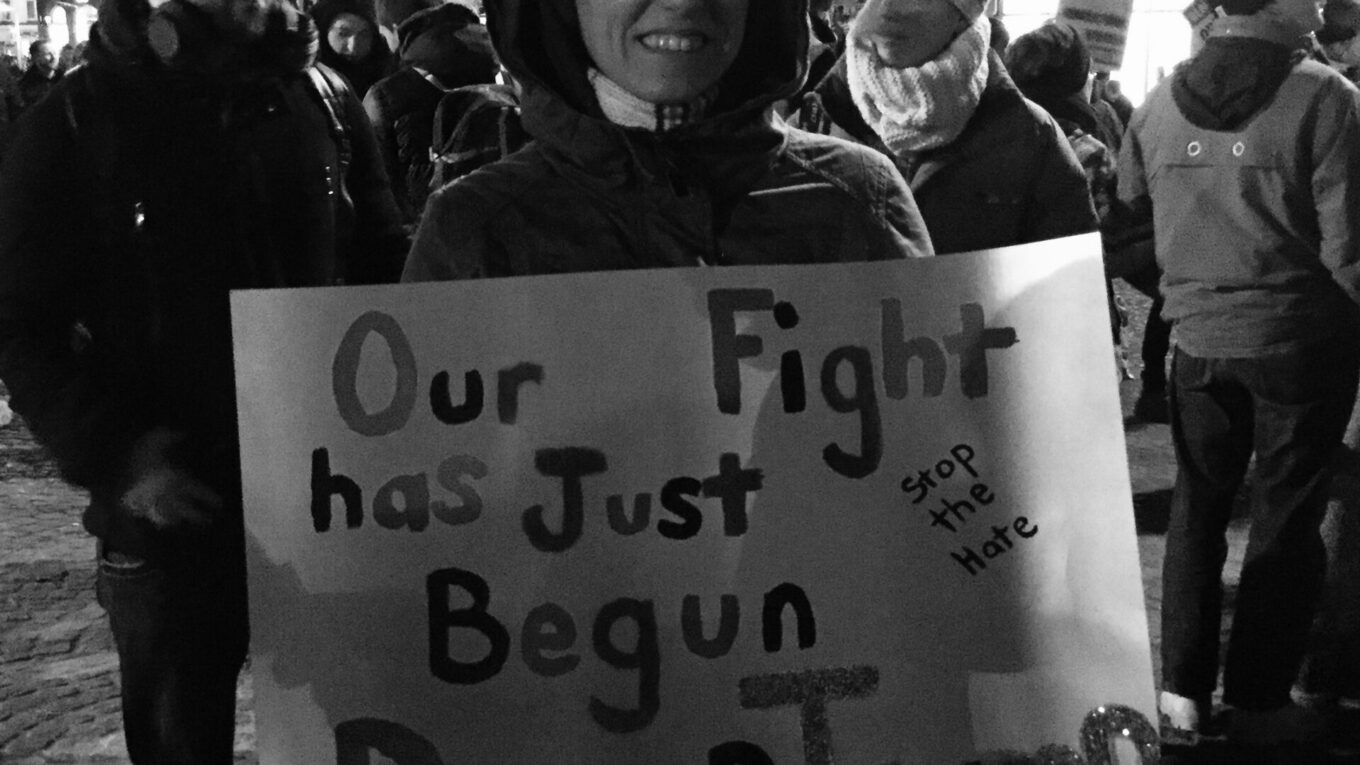 Our Fight
has Just
Begun
Stop
the
Hate